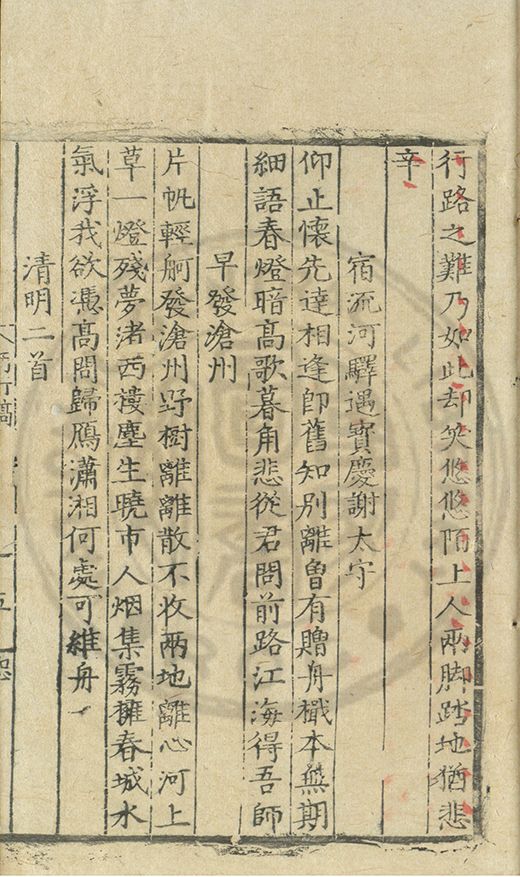 行路之難乃如此却笑悠悠陌上人兩脚踏地猶悲
辛
宿流河驛遇寶慶謝太守
仰止懷先達相逢卽舊知別離曾有贈舟檝本無期
細語春燈暗高歌暮角悲從君問前路江海得吾師
早發滄州
片帆輕舸發滄州野樹離離散不收兩地離心河上
草一燈殘夢渚西樓塵生曉市人烟集霧擁春城水
氣浮我欲憑高問歸鴈瀟湘何處可維舟
清明二首